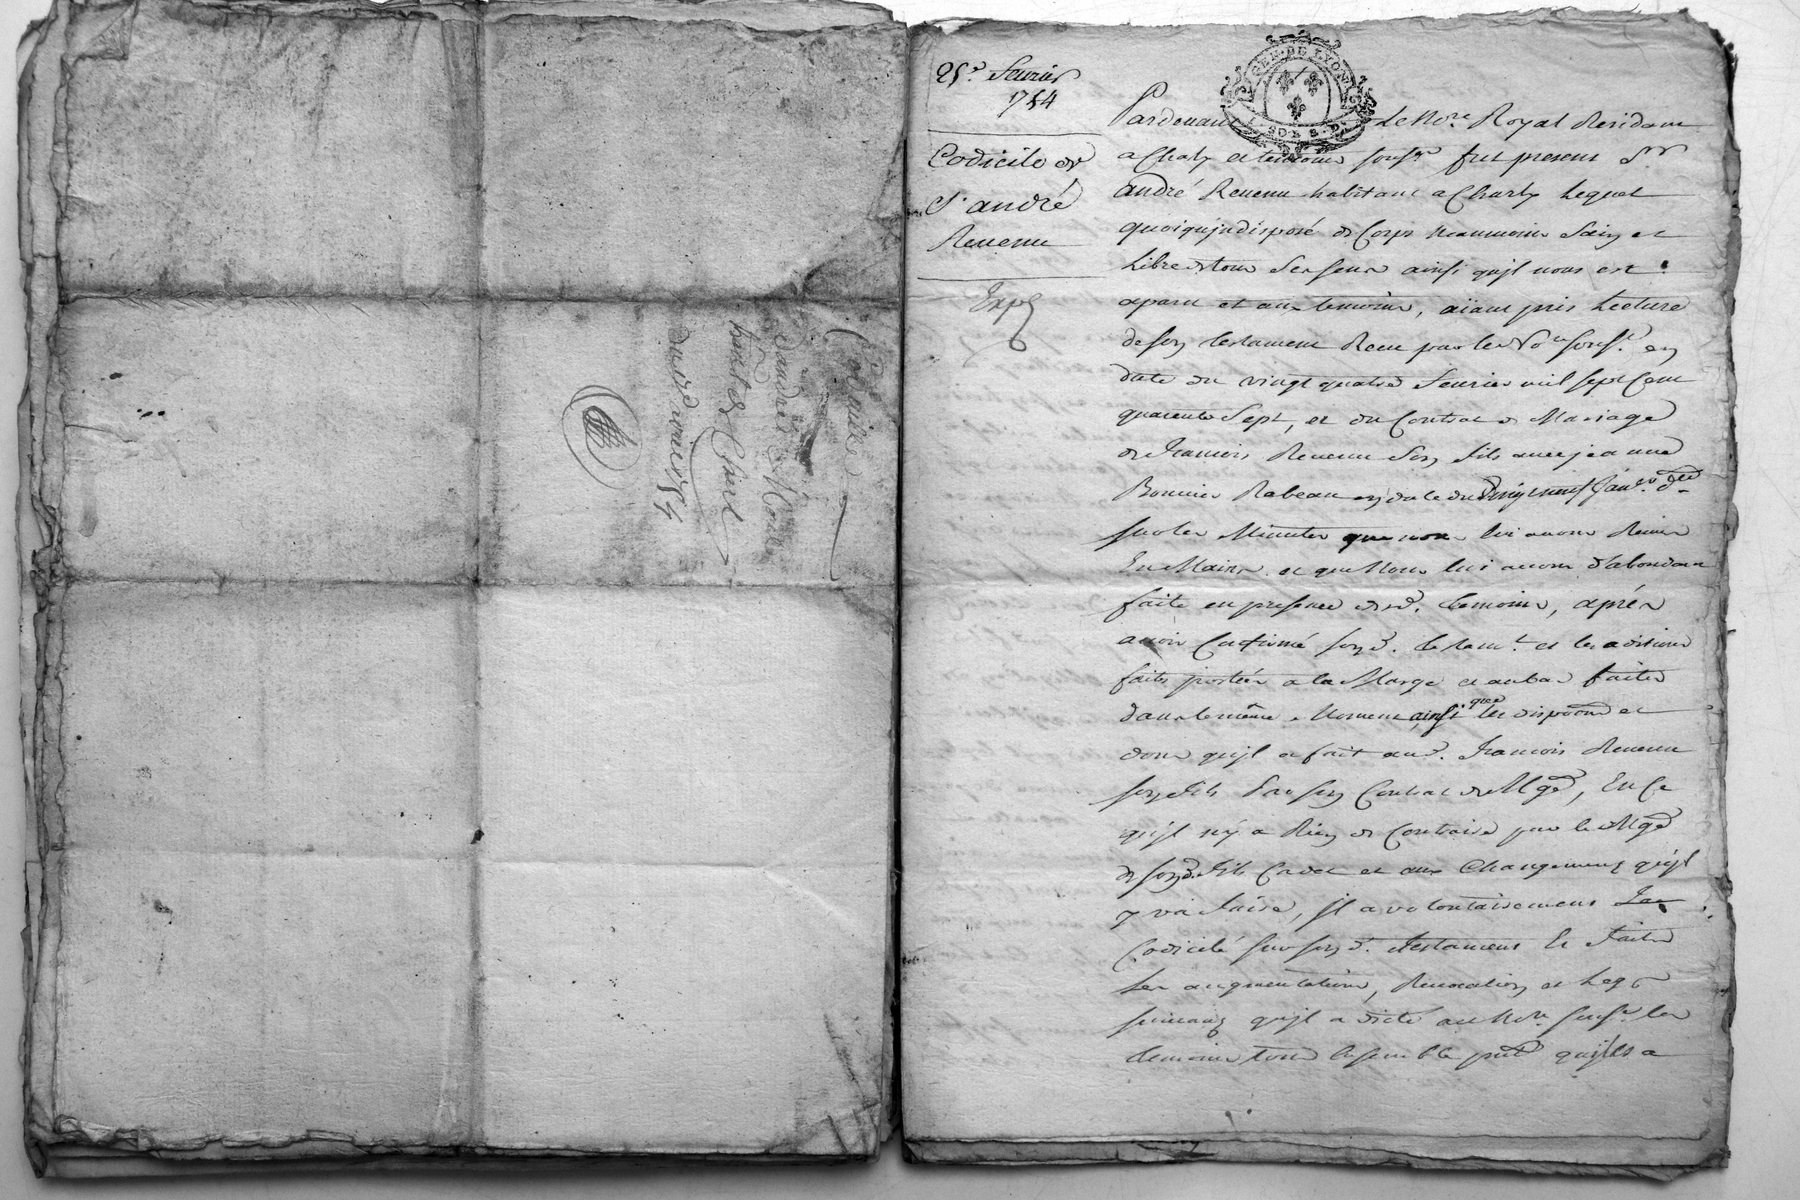 Codicile
d'andré
du 27 1754
25e. feurier
1754
Codicile de
Sr. andré
Reuenu
Exp
GEN. DE LYON
Pardeuant Le Nore. Royal Residant
a Charly et temoins soussne. fut present Sr
andré Reuenu habitant a Charly Lequel
quoiqu'jndisposé de Corps neanmoins Sain et
Libre de tous Ses sens ainsi qu'jl nous est
aparu et aux temoins, aïant pris Lecture
de son testament Receu par le No. soussr. en
date du vingt quatre feurier mil sept Cent
quarante Sept, et du Contrat de Mariage
de francois Reuenu Son fils auec jeanne
Bonnier Rabeau en date du vingt neuf Janer. dr.
sur les Minutes que nous lui auons Remis
En Mains et que Nous lui auons d'abondant
faite en presence desd. temoins, aprés
auoir Confirmé sond. testamt. et les aditions
faites portées a la Marge et au bas faites
dans le même Moment ainsi que les dispoons et
dons qu'jl a fait aud. francois Reuenu
son fils Par son Contrat de Mge, En Ce
qu'jl n'ÿ a Rien de Contraire par le Mge
de sond. fils Cadet et aux Changements qu'jl
y va faire, jl a volontairement
Codicilé sur sond. testament Et faites
les augmentations, Reuocation et Legs
suiuants qu'jl a dicté au Nore. soussr. les
temoins tous Ensemble pnts qu'jls a